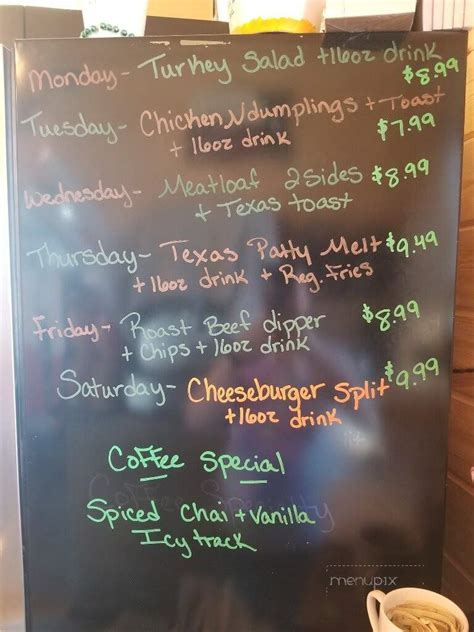 Monday - Turkey Salad +16oz drink
$8.99
Tuesday - Chicken N dumplings + Toast
+ 16oz drink $7.99
Wednesday - Meatloaf 2 Sides $8.99
+ Texas toast
Thursday - Texas Patty Melt $9.49
+ 16oz drink + Reg. Fries
Friday - Roast Beef dipper $8.99
+ Chips + 16oz drink
Saturday - Cheeseburger Split $9.99
+16oz drink
Coffee Special
Spiced Chai + Vanilla
Icy track
menupix